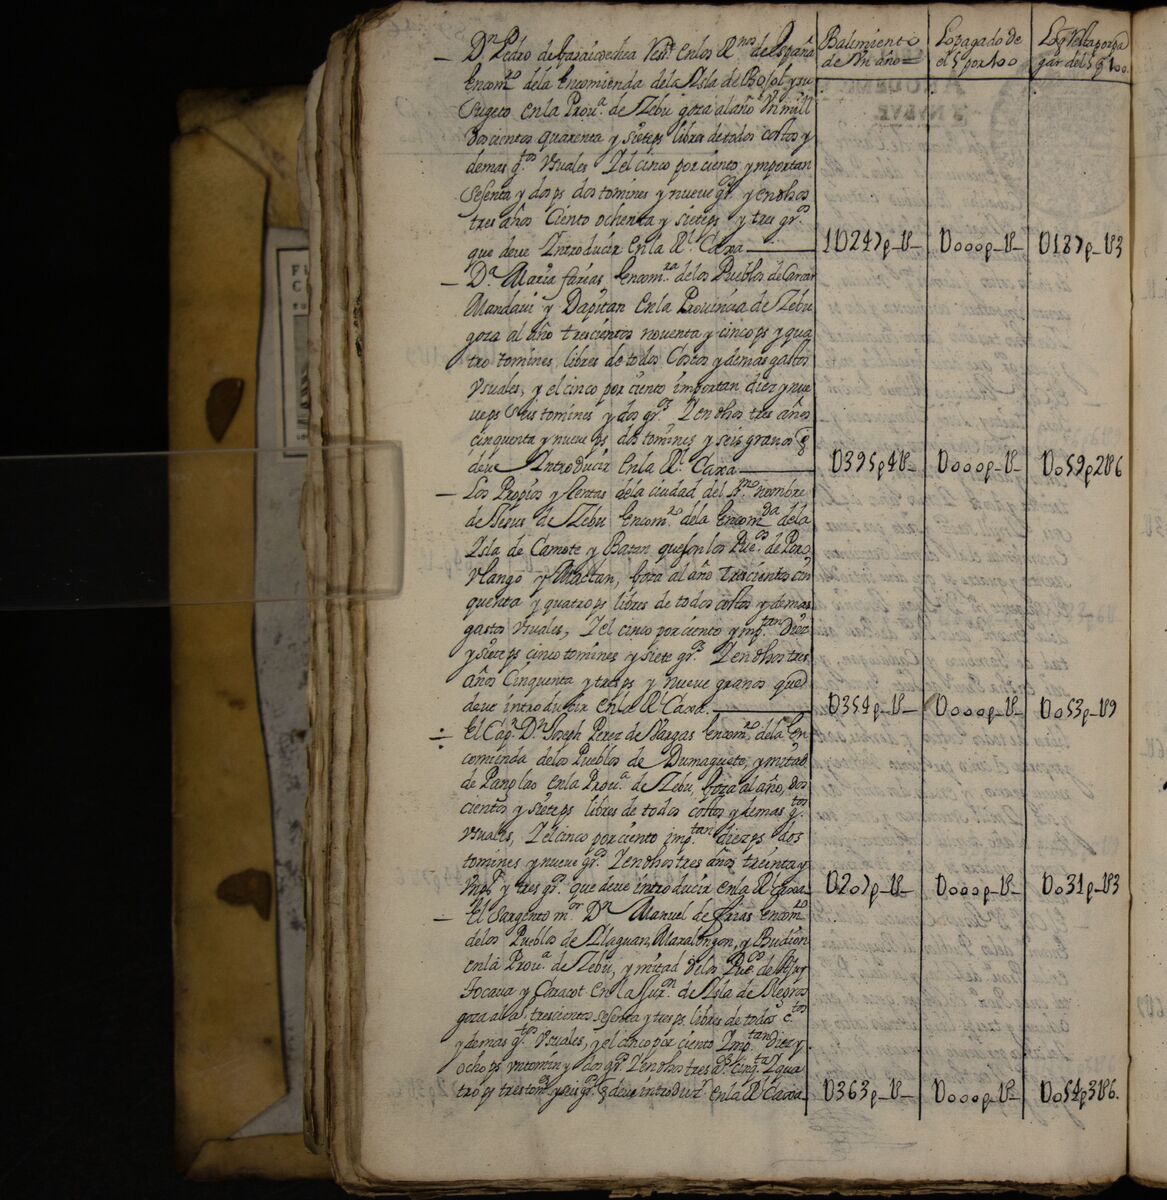 Balimiento
de Un año=
Lo pagado de
el 5 por 100
Lo q Resta por pa
gar del 5 p 100
Dn Pedro de Resite en los Rnos de España
Encomo dela Encomienda dela Isla de Bohol y su
Sugeto en la Prova de Zebu goza al año Un mill
Doscientos quarenta y siete ps libres de todos costos y
demas gtos Usuales Y el cinco por ciento ymportan
Sesenta y dos ps dos tomines y nueve gs y en dhos
tres años Ciento ochenta y siete ps y tres gros
que deve Introducir en la Rl Caxa
1U247p-U-
U000p-U-
U187p-U3
Da Maria farias Encomra delos Pueblos de Carcar
Mandavi y Dapitan en la Provincia de Zebu
goza al año trescientos noventa y cinco ps y qua
tro tomines, libres de todos Costos y demas gastos
Usuales, y el cinco por ciento importan diez y nue
ve ps Seis tomines y dos gros Y en dhos tres años
cinquenta y nueve ps dos tomines y seis granos q
deve Introducir en la Rl Caxa
U395p4U-
U000p-U-
U059p2U6
Los Propios y Rentas dela ciudad del Smo nombre
de Jesus de Zebu Encomo dela Encomda dela
Isla de Camote y Batan que son los Pueos de Poro
Vlango y Mactan, Goza al año Trescientos cin
quenta y quatro ps libres de todos costos y demas
gastos Usuales, Y el cinco por ciento ymptan Diez
y siete ps cinco tomines y siete gros Y en dhos tres
años Cinquenta y tres ps y nueve granos que
deve introducir en la Rl Caxa.
U354p-U-
U000p-U-
U053p-U9
El Capn Dn Joseph Perez de Bargas Encomo dela En
comienda delos Pueblos de Dumaguete, y mitad
de Panglao en la Prova de Zebu, Goza al año, Dos
cientos y siete ps libres de todos costos y demas gtos
Usuales, Y el cinco por ciento imptan diez ps dos
tomines y nueve gros Y en dhos tres años treinta y
Un ps y tres gros que deve introducir en la Rl Caxa
U207p-U-
U000p-U-
U031p-U3
El Sargento mor Dn Manuel de farias Encomo
delos Pueblos de Maralongon, y Budion
en la Prova de Zebu, y mitad delos Pueos de
y en la Juron de Isla de Negros
goza al a. trescientos sesenta y tres ps libres de todos ctos
y demas gtos Usuales, y el cinco por ciento Imptan Diez y
ocho ps un tomin y dos gros Y en dhos tres as cinqta Y qua
tro ps tres toms y seis gros q deve introducir en la Rl Caxa
U363p-U-
U000p-U-
U054p3U6.